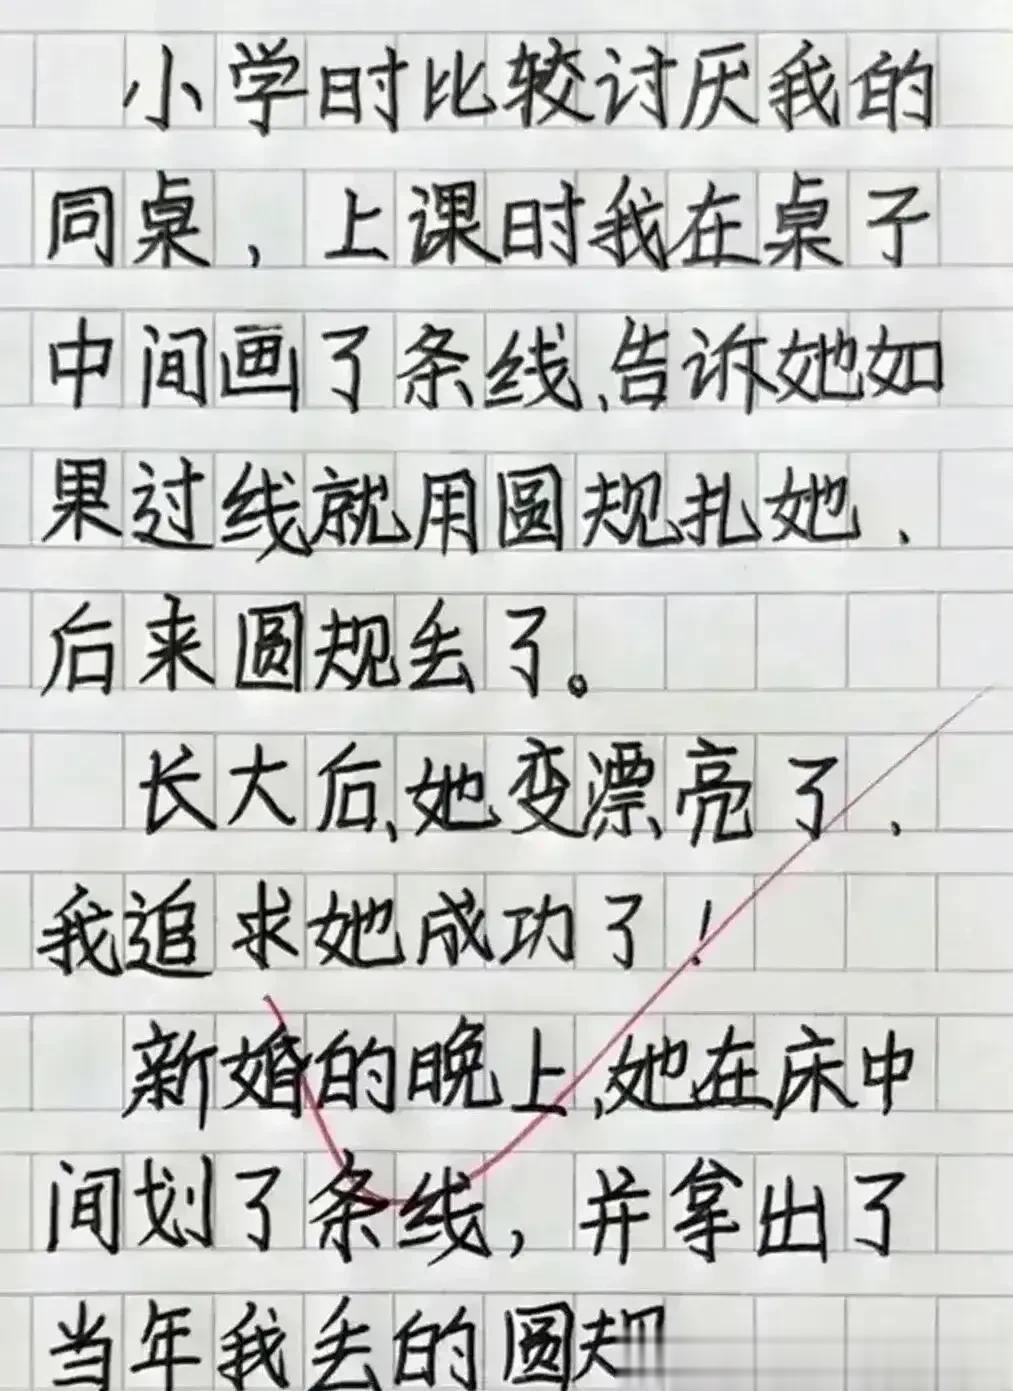 小学时比较讨厌我的
同桌，上课时我在桌子
中间画了条线、告诉她如
果过线就用圆规扎她、
后来圆规丢了。
长大后、她变漂亮了、
我追求她成功了！
新婚的晚上、她在床中
间划了条线，并拿出了
当年我丢的圆规